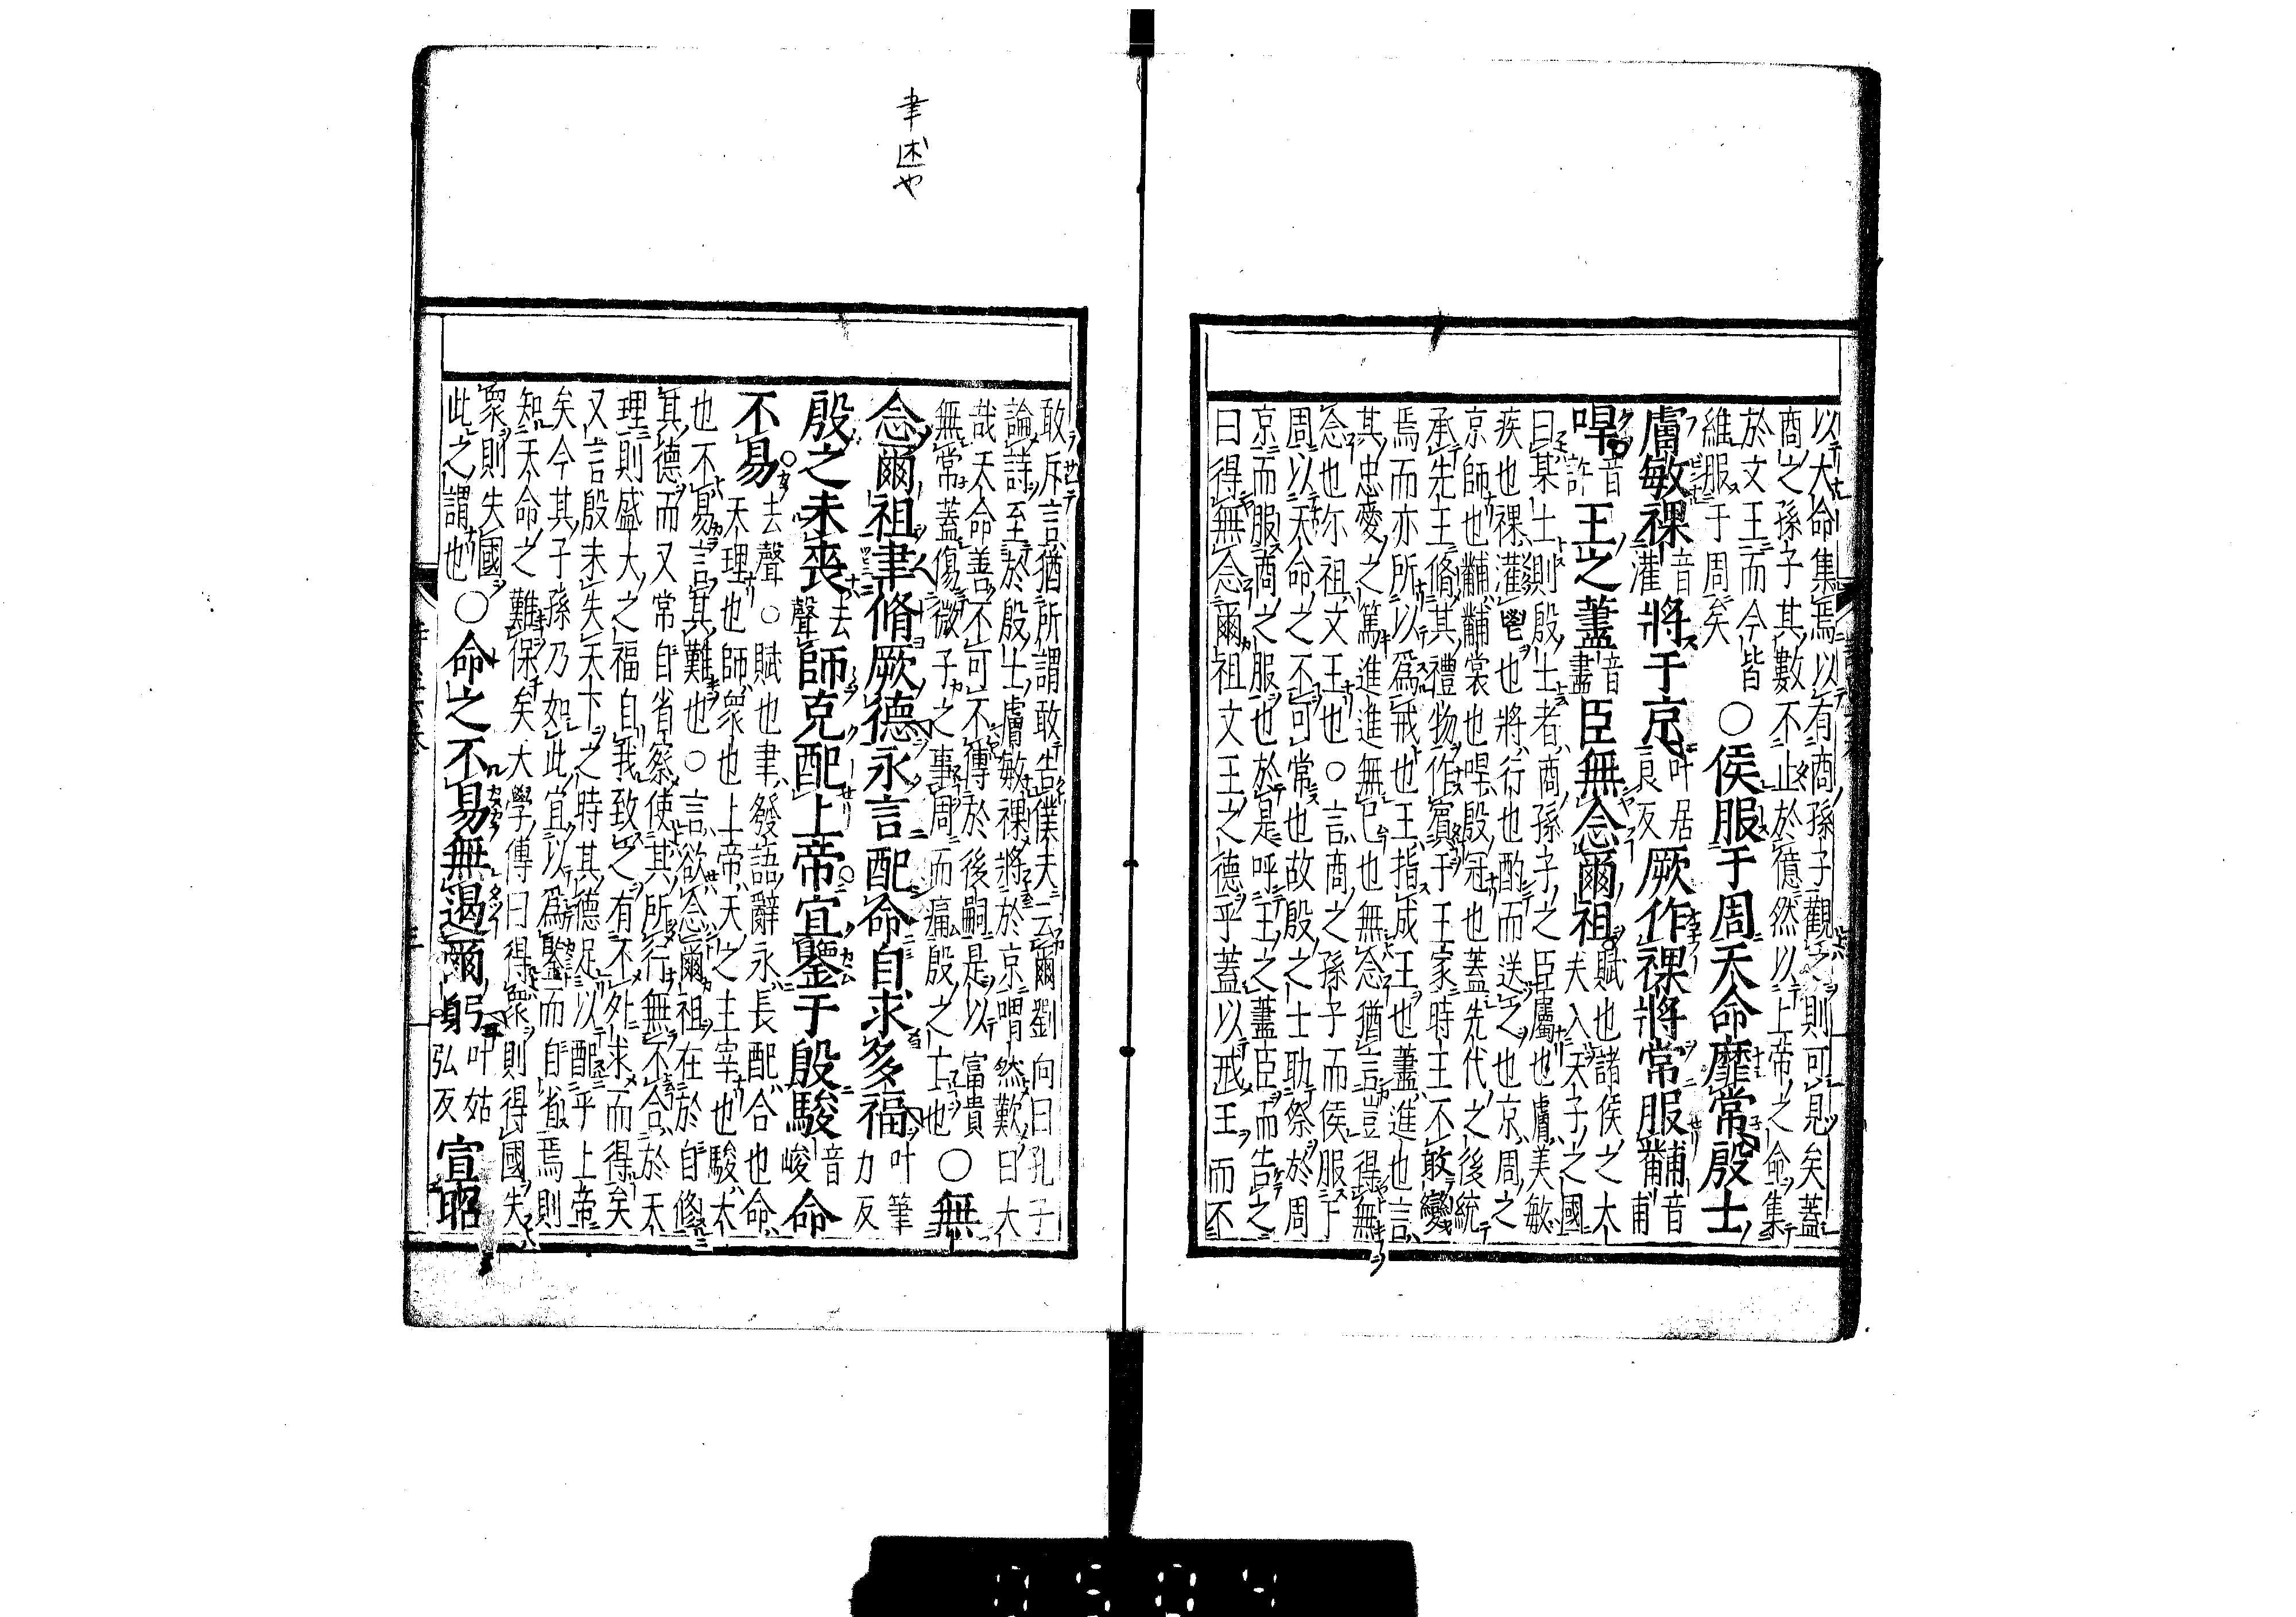 以大命集焉以有商孫子觀之則可見矣蓋
商之孫子其數不止於億然以上帝之命集
於文王而今皆
維服于周矣○侯服于周天命靡常殷士
膚敏祼音灌將于京叶居良反厥作祼將常服黼音甫
冔音許王之藎音盡臣無念爾祖賦也諸侯之大夫入天子之國
曰某士則殷士者商孫子之臣屬也膚美敏
疾也祼灌鬯也將行也酌而送之也京周之
京師也黼黼裳也冔殷冠也蓋先代之後統
承先王脩其禮物作賓于王家時王不敢變
焉而亦所以爲戒也王指成王也藎進也言
其忠愛之篤進進無已也無念猶言豈得無
念也尔祖文王也○言商之孫子而侯服于
周以天命之不可常也故殷之士助祭於周
京而服商之服也於是呼王之藎臣而告之
曰得無念爾祖文王之德乎蓋以戒王而不
敢斥言猶所謂敢告僕夫云爾劉向曰孔子
論詩至於殷士膚敏祼將於京喟然歎曰大
哉天命善不可不傳於後嗣是以富貴
無常蓋傷微子之事周而痛殷之亡也○無
念爾祖聿脩厥德永言配命自求多福叶筆力反
殷之未喪去聲師克配上帝宜鑒于殷駿音峻命
不易去聲○賦也聿發語辭永長配合也命
天理也師衆也上帝天之主宰也駿大
也不易言其難也○言欲念爾祖在於自脩
其德而又常自省察使其所行無不合於天
理則盛大之福自我致之有不外求而得矣
又言殷未失天下之時其德足以配乎上帝
矣今其子孫乃如此宜以爲鑒而自省焉則
知天命之難保矣大學傳曰得衆則得國失
衆則失國
此之謂也○命之不易無遏爾躬叶姑弘反宣昭
聿述也